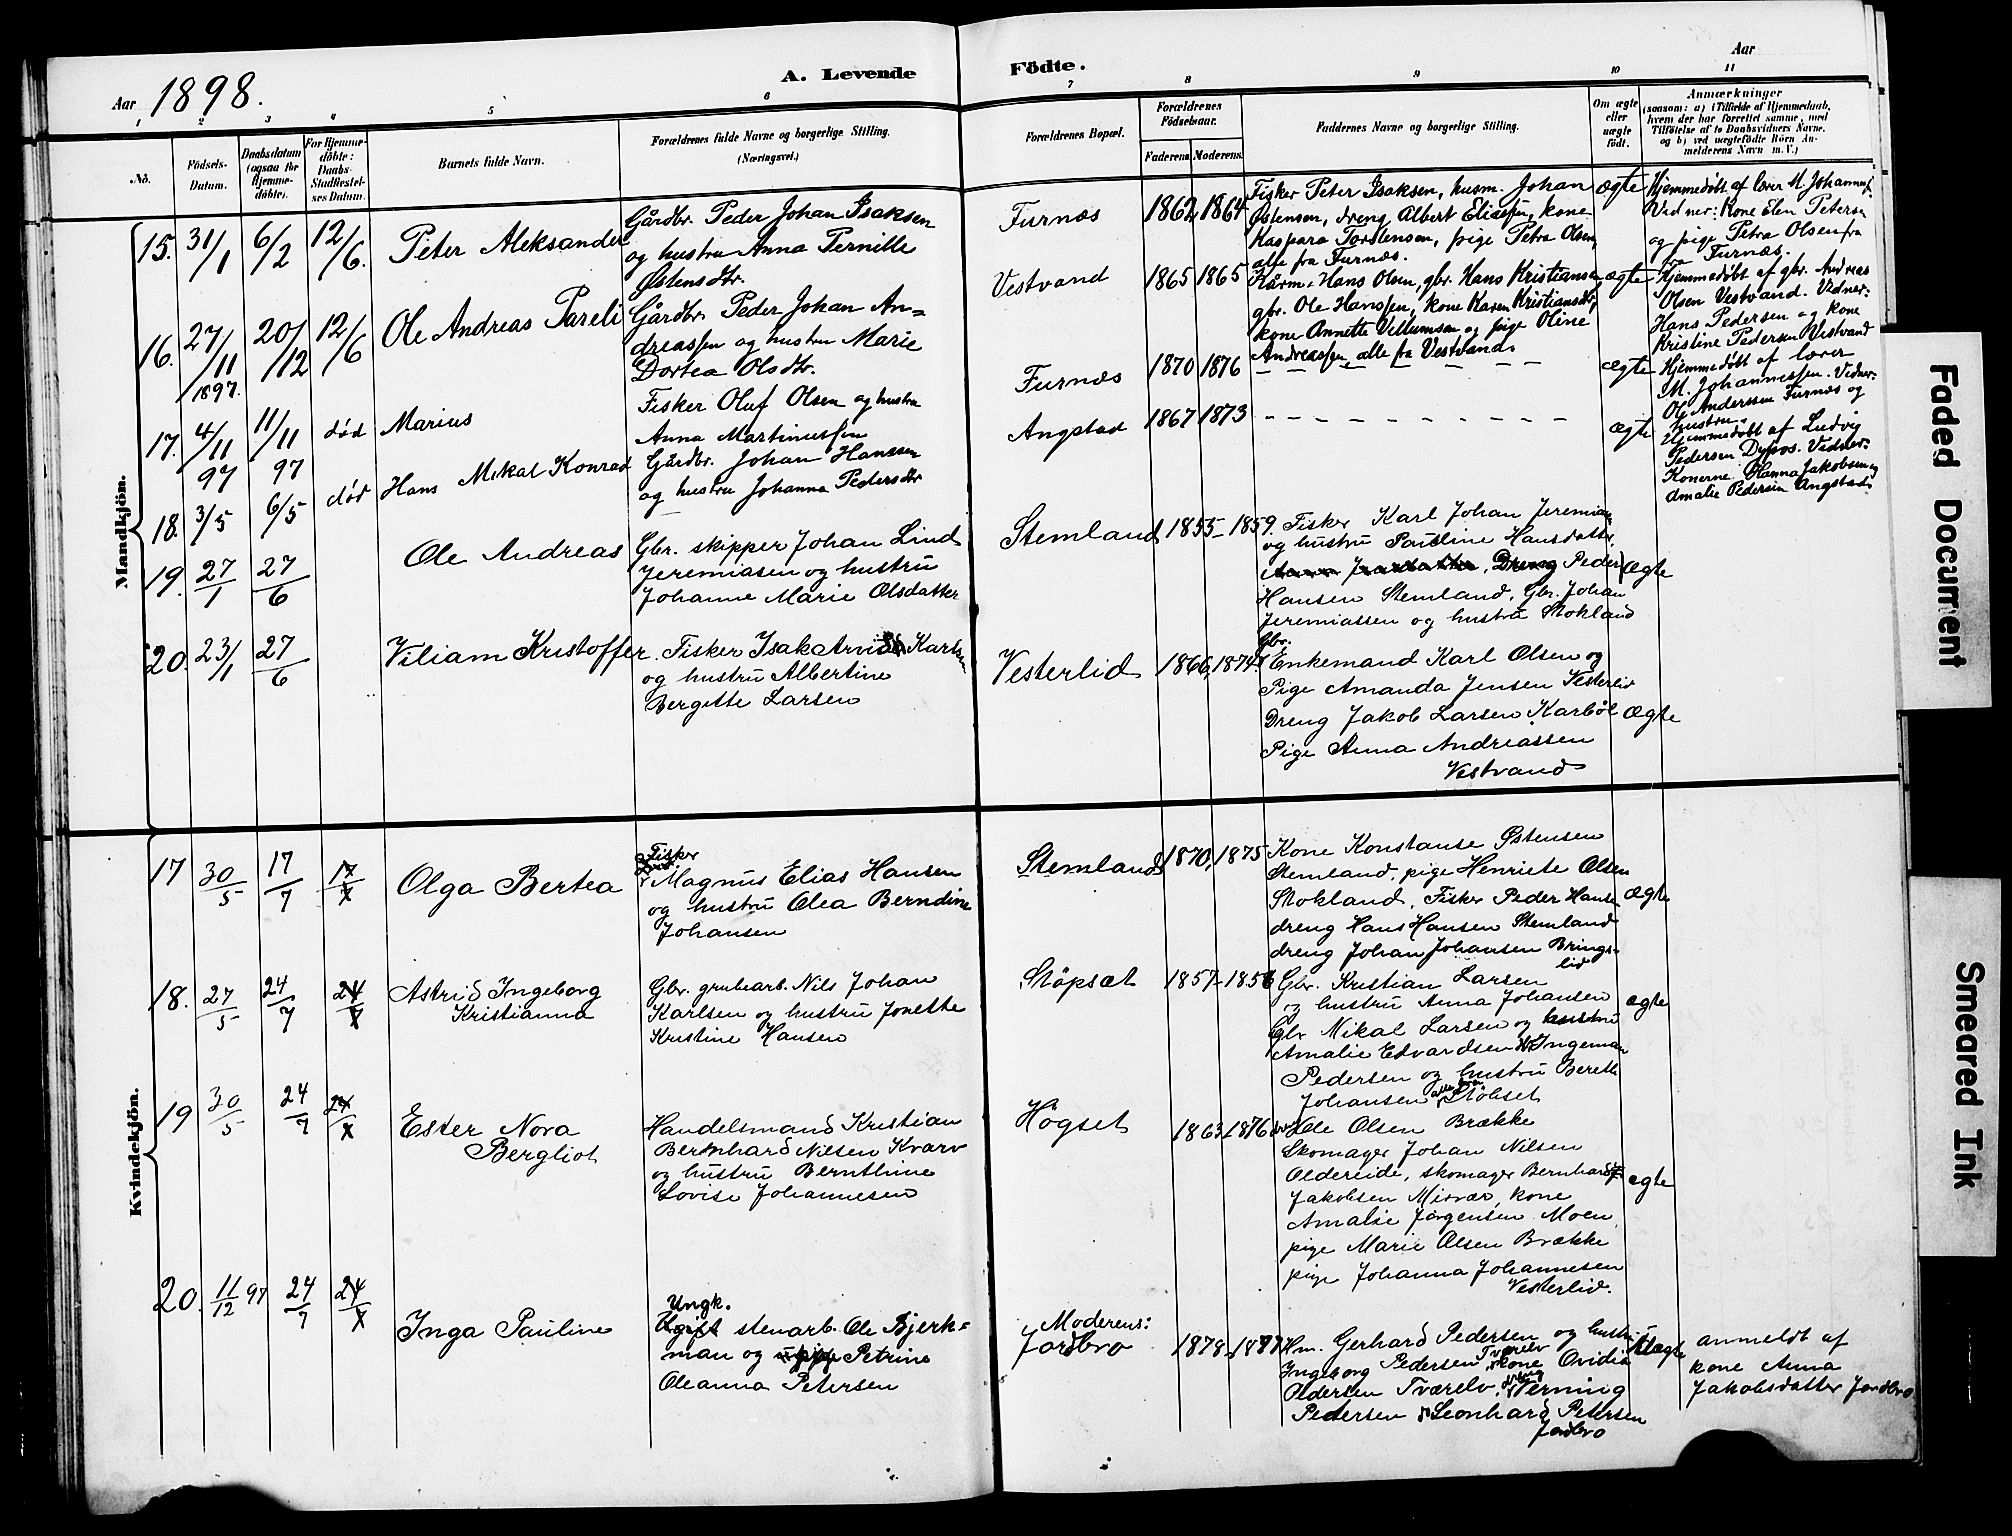 Aar 1898.
A. Levende Födte.
Aar
1 2 3 4 5 6 7 8 9 10 11
No.
Födsels-Datum.
Daabsdatum (ogsaa for Hjemme-döbte).
For Hjemme-döbte: Daabs-Stadfæstel-ses Datum.
Barnets fulde Navn.
Forældrenes fulde Navne og borgerlige Stilling.
(Næringsvei.)
Forældrenes Bopæl.
Forældrenes Födselsaar.
Faderens. Moderens.
Faddernes Navne og borgerlige Stilling.
Om ægte eller uægte födt.
Anmærkninger
(saasom: a) i Tilfælde af Hjemmedaab,
hvem der har forrettet samme, med
Tilföielse af to Daabsvidners Navne,
og b) ved uægtefödte Börn An-
melderens Navn m. V.)
Mandkjön.
15. 31/1 6/2 12/6. Peter Aleksander
Gårdbr. Peder Johan Isaksen
og hustru Anna Pernille
Østensdtr.
Furnæs 1862 1864
Fisker Peter Isaksen, husm. Johan
Østensen, dreng Albert Eliassen, kone
Kaspara Torstensen, pige Petra Olsen,
alle fra Furnæs.
ægte
Hjemmedøbt af lærer M. Johannes.
Vidner: Kone Elen Petersen
og pige Petra Olsen fra
Furnæs.
16. 27/11 1897. 20/12 12/6 Ole Andreas Pareli
Gårdbr. Peder Johan An=
dreassen og hustru Marie
Dortea Olsdtr.
Vestvand 1865 1865
Hans Olsen, gbr. Hans Kristiansen,
gbr. Ole Hanssen, kone Karen Kristiansdtr,
kone Annette Vellumsen og pige Oline
Andreassen, alle fra Vestvand.
ægte
Hjemmedøbt af gbr. Andreas
Olsen Vestvand. Vidner:
Hans Pedersen og kone
Kristine Pedersen Vestvand
17. 4/11 97 11/11 97 død Marius
Fisker Oluf Olsen og hustru
Anna Martinussen
Furnæs 1870 1876 – – – – – – –
ægte
Hjemmedøbt af lærer
M. Johannessen. Vidner:
Ole Anderssen Furnæs og
hustru.
18. 3/5 6/5 død Hans Mikal Konrad
Gårdbr. Johan Hanssen
og hustru Johanna Pedersdtr
Angstad 1867 1873 – – – – – – – –
ægte
Hjemmedøbt af Ludvig
Pedersen Vidner:
Konerne Hanna Jakobsen og
Amalie Pedersen Angstad.
19. 27/1 27/6 Ole Andreas
Gbr. skipper Johan Lind
Jeremiasen og hustru
Johanne Marie Olsdatter
Stemland 1855 – 1859.
Fisker Karl Johan Jeremias
og hustru Pauline Hansdatter
Dreng Peder
Hansen Stemland, Gbr. Johan
Jeremiassen og hustru Stokland
Ægte
20. 23/1 27/6 Viliam Kristoffer.
Fisker Isak Arvid Karlsen
og hustru Albertine
Bergitte Larsen
Vesterlid 1866, 1874
Gbr.
Enkemand Karl Olsen og
Pige Amanda Jensen Vesterlid
Dreng Jakob Larsen Karbøl
Pige Anna Andreassen
Vestvand
Ægte
Kvindekjön.
17 30/5 17/7 17/7 Olga Bertea
Fisker
Magnus Elias Hansen
og hustru Olea Berndine
Johansen
Stemland 1870, 1875
Kone Konstanse Østensen
Stemland, pige Henriete Olsen
Stokland, Fisker Peder Hansen
dreng Hans Hansen Stemland
dreng Johan Johansen Brings-
lid
Ægte
18. 27/5 24/7 24/7 Astrid Ingeborg
Kristianna
Gbr. grubearb. Nils Johan
Karlsen og hustru Jonette
Kristine Hansen
Støpsæt 1857 – 1858
Gbr. Kristian Larsen
og hustru Anna Johansen
Gbr Mikal Larsen og hustru
Amalie Edvardsen Ingeman
Pedersen og hustru Bereth
Johansen alle fra Støbset
ægte
19 30/5 24/7 24/7 Ester Nora
Bergliot
Handelsmand Kristian
Bernhard Nilsen Kvarv
og hustru Bernthine
Lovise Johannesen
Høgset 1863, 1876
Ole Olsen Brække
Skomager Johan Nilsen
Oldereide, skomager Bernhard
Jakobsen Misvær, kone
Amalie Jørgensen Moen
pige Marie Olsen Brække
pige Johanna Johannesen
Vesterlid.
ægte
20. 11/12 97 24/7 24/7 Inga Pauline
Ungk.
Ugift stenarb. Ole Bjerk=
man og Petrine
Oleanna Petersen
Moderens:
Jordbro 1878, 1877
Hm. Gerhard Pedersen og hustru
Ingeborg Pedersen Tværelv, kone Ovidia
Pedersen Tværelv, dreng Verming
Pedersen & Leonhard Petersen
Jordbro
Uægte
anmeldt af
kone Anna
Jakobsdatter Jordbro
Faded Document
Smeared Ink